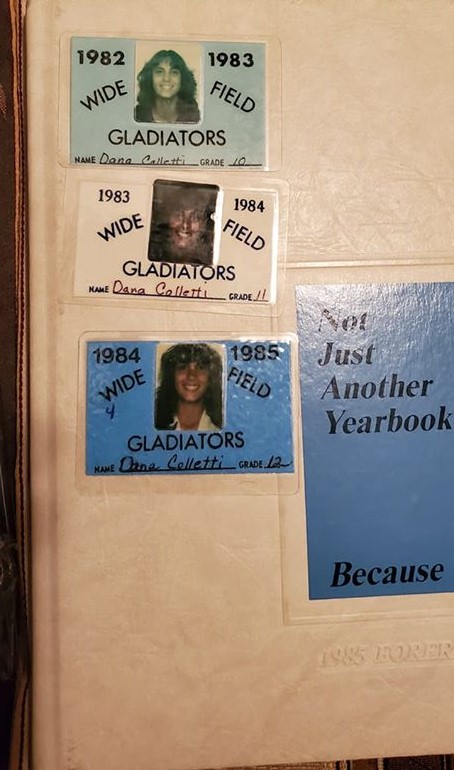 1982 1983
WIDE FIELD
GLADIATORS
NAME Dana Colletti GRADE 10
1983 1984
WIDE FIELD
GLADIATORS
NAME Dana Colletti GRADE 11
1984 1985
WIDE FIELD
4
GLADIATORS
NAME Dana Colletti GRADE 12
Not
Just
Another
Yearbook
Because
1985